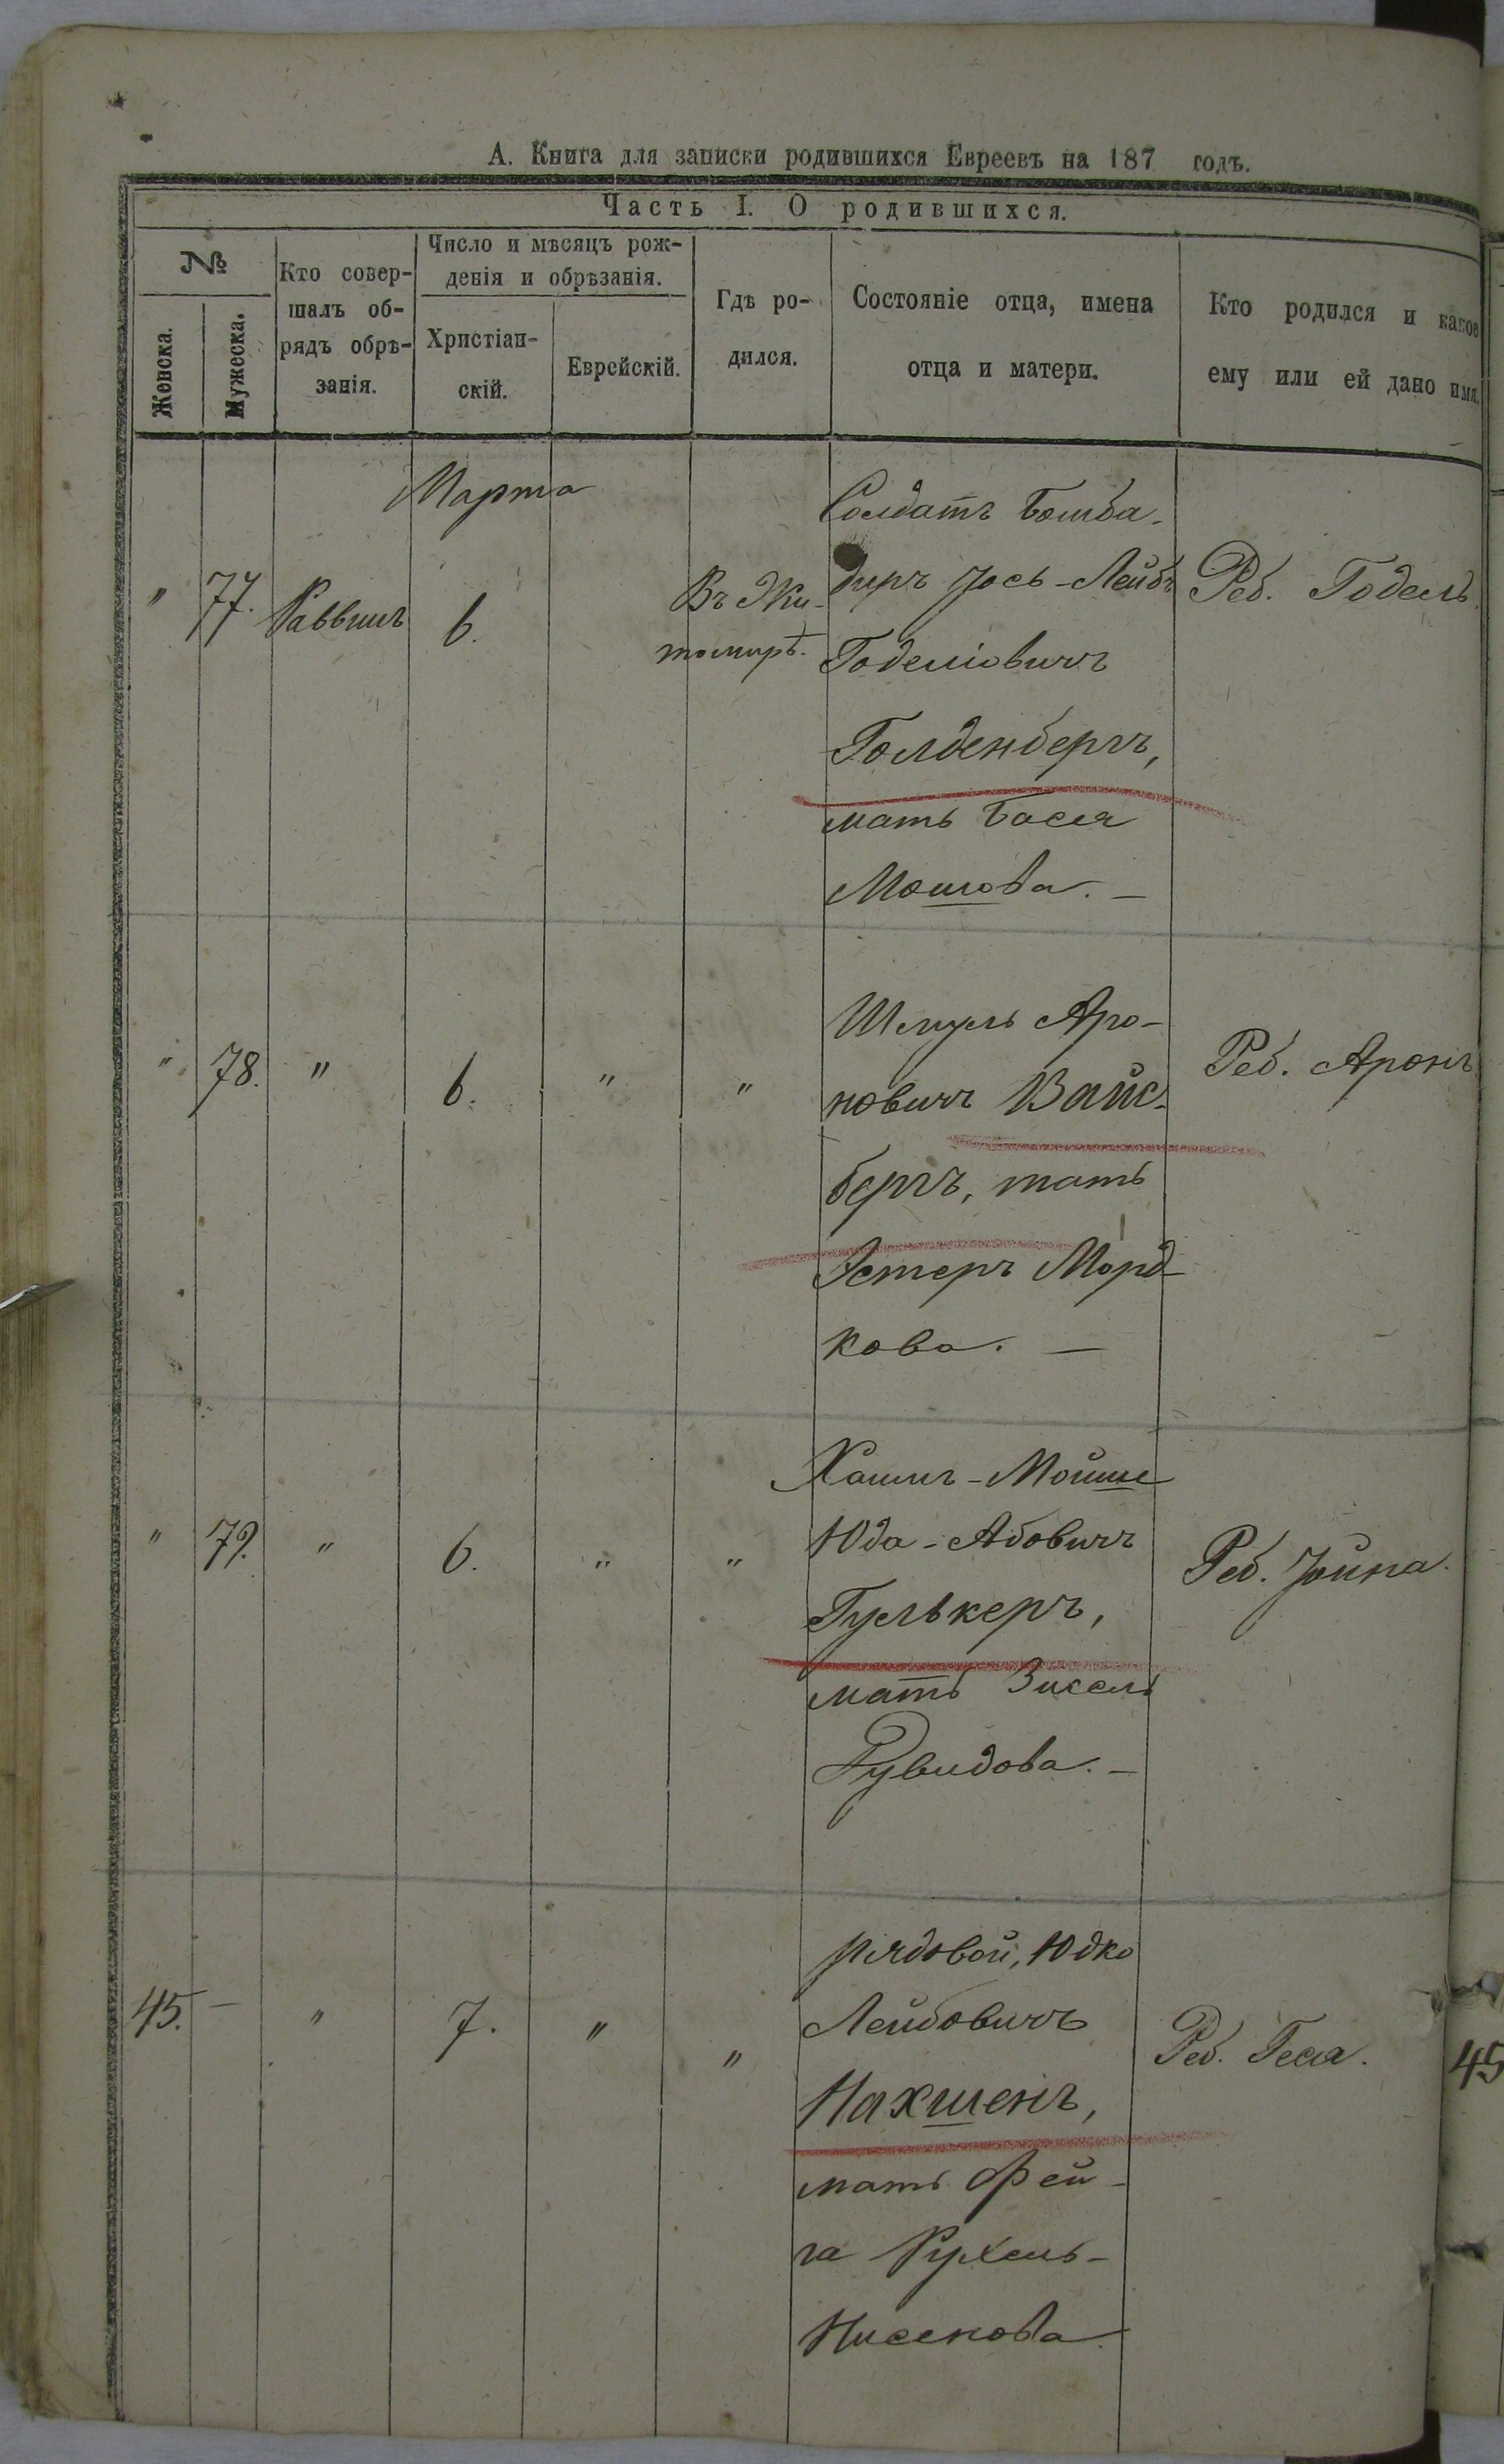 А. Книга для записки родившихся Евреевъ на 187 годъ.
Часть I. О родившихся.
№
Женска.
Мужеска.
Кто совер-
шалъ об-
рядъ обрѣ-
занія.
Число и мѣсяцъ рож-
денія и обрѣзанія.
Христіан-
скій.
Еврейскій.
Гдѣ ро-
дился.
Состояніе отца, имена
отца и матери.
Кто родился и какое
ему или ей дано имя.
Марта
" 77. Раввинъ 6.
Въ Жи-
томирѣ.
Солдатъ Бомба-
диръ Іось-Лейбъ
Годеліовичъ
Голденбергъ,
мать Бася
Мошова. —
Реб. Годель
" 78. " 6. " "
Шмуль Аро-
новичъ Вайс-
бергъ, мать
Эстеръ Морд-
кова. —
Реб. Аронъ
" 79. " 6. " "
Хаимъ-Мойше
Юда-Абовичъ
Гулькеръ,
мать Зисель
Рувидова. —
Реб. Іойна.
45. — " 7. " "
рядовой, Юдко
Лейбовичъ
Нахшенъ,
мать Фей-
га Рухель-
Нисенова
Реб. Геся.
45